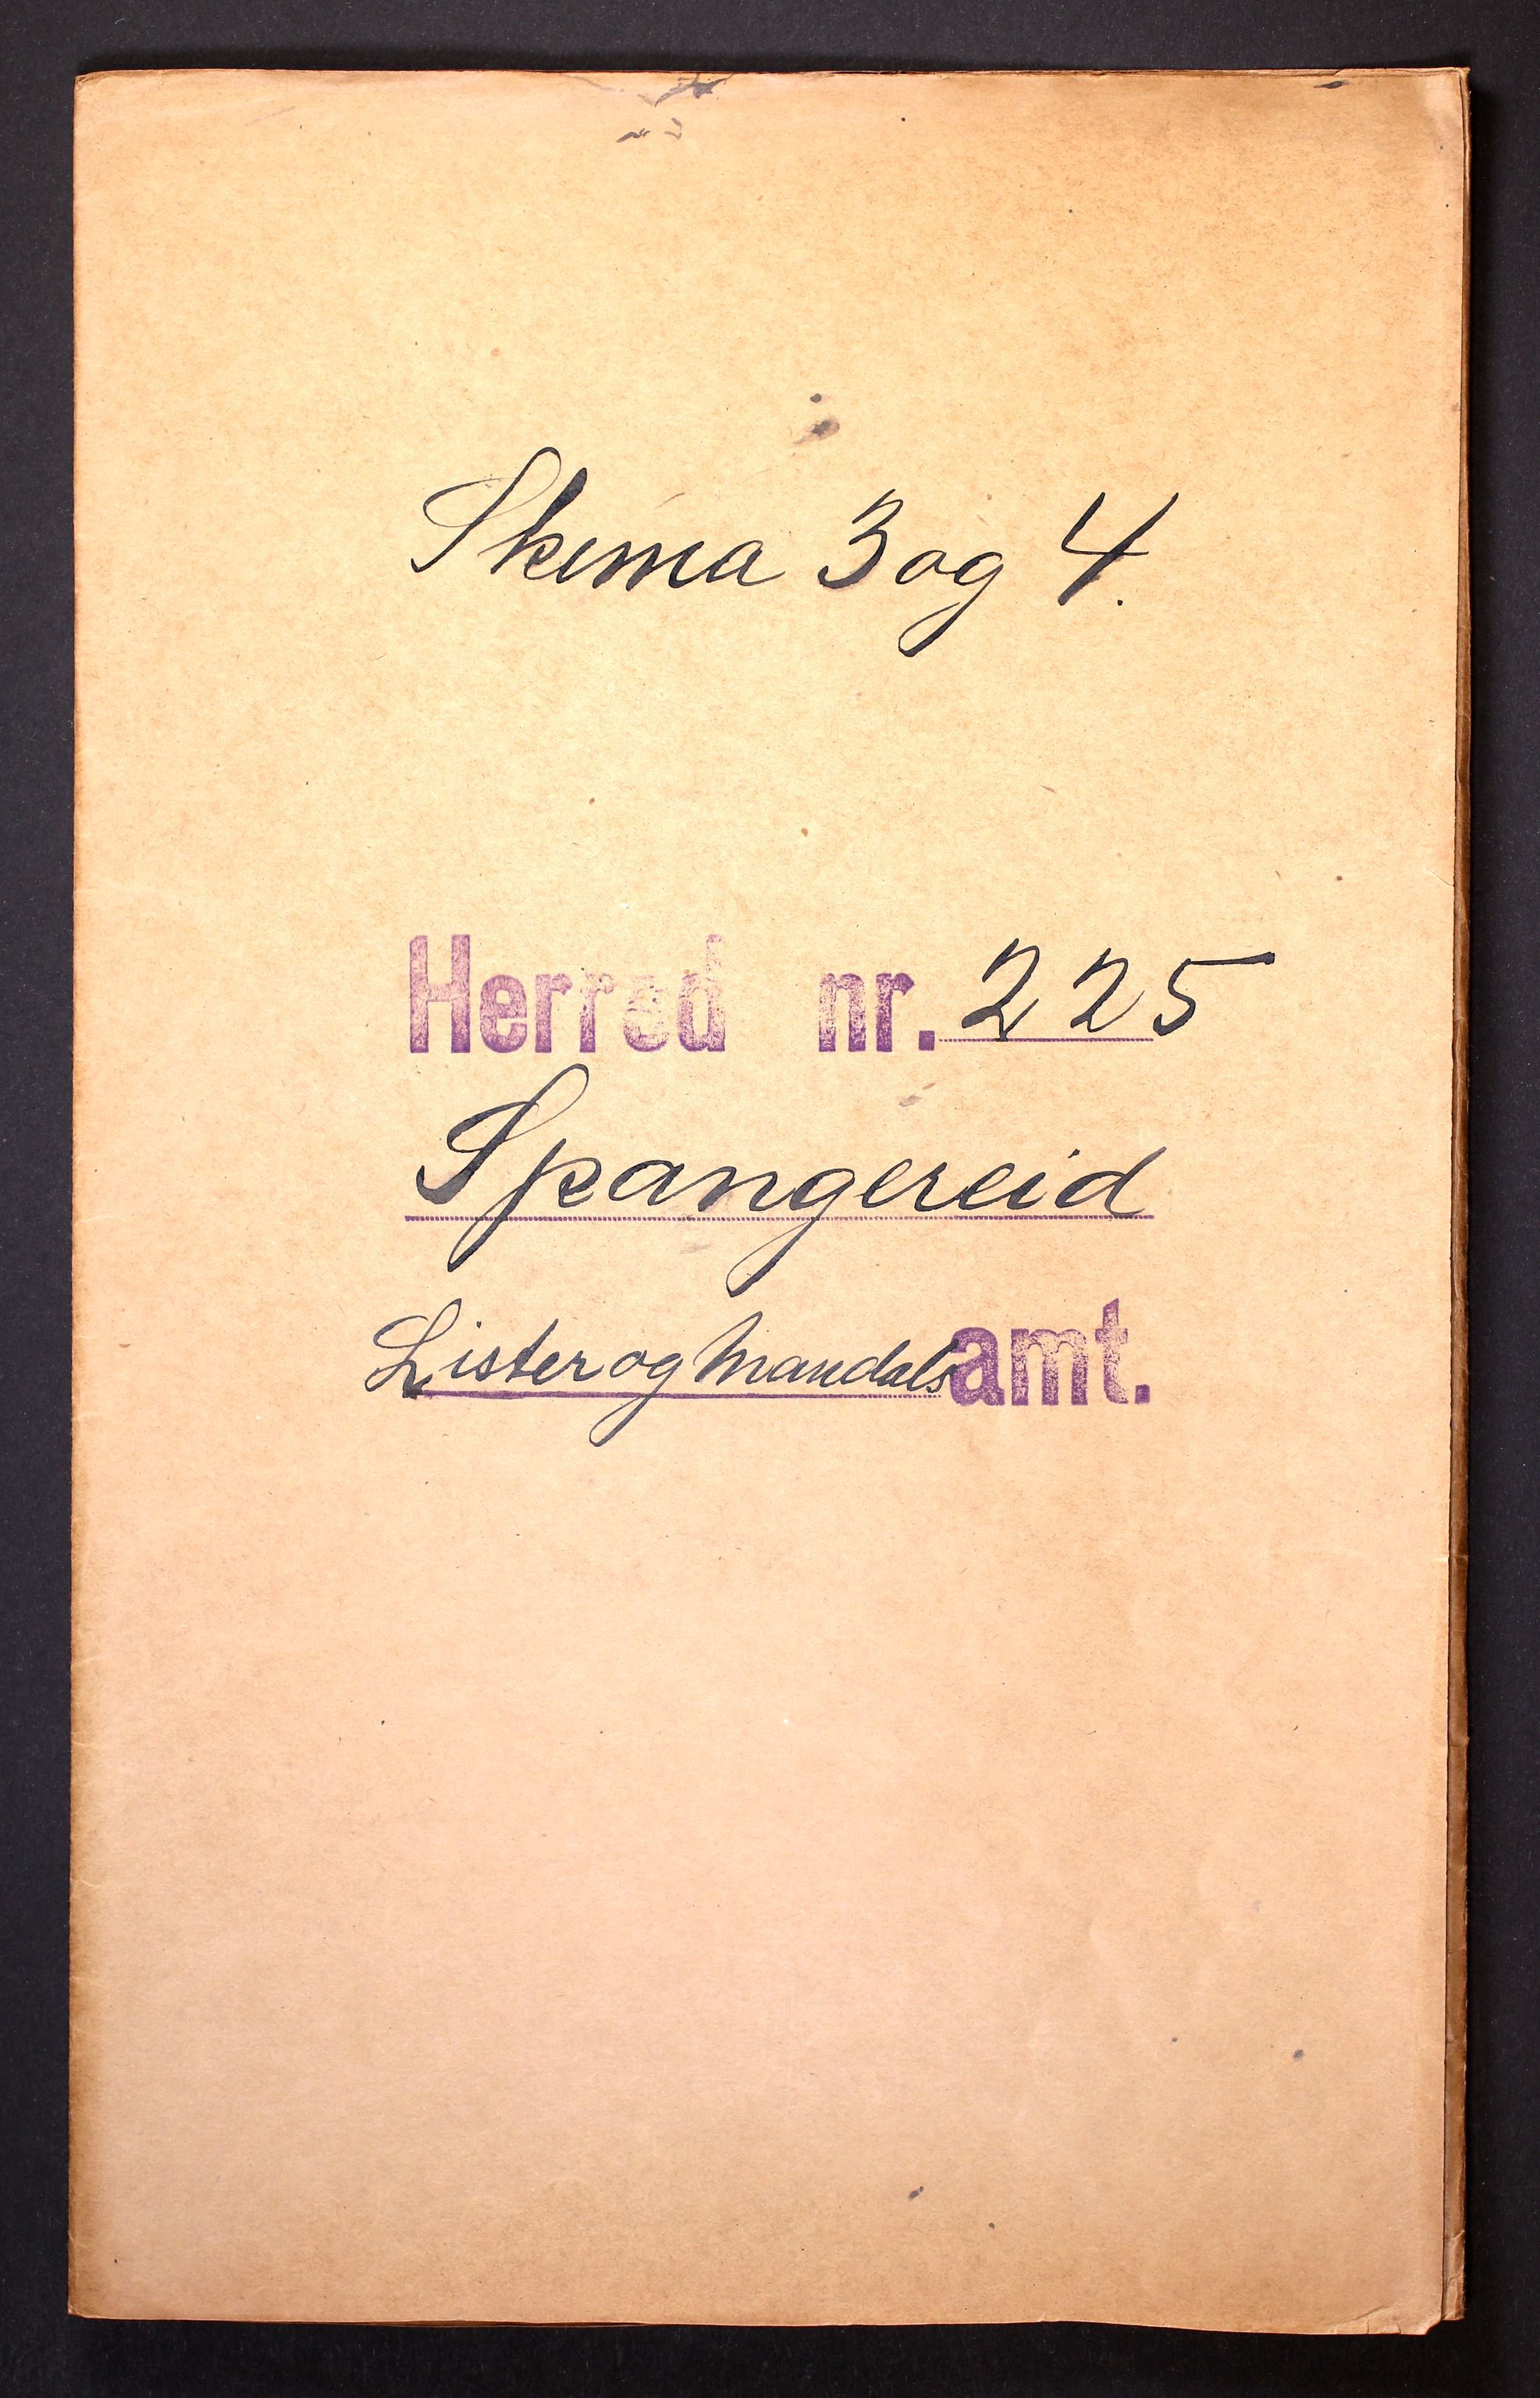 Skema 3 og 4.
Herred nr. 225
Spangereid
Lister og Mandals amt.